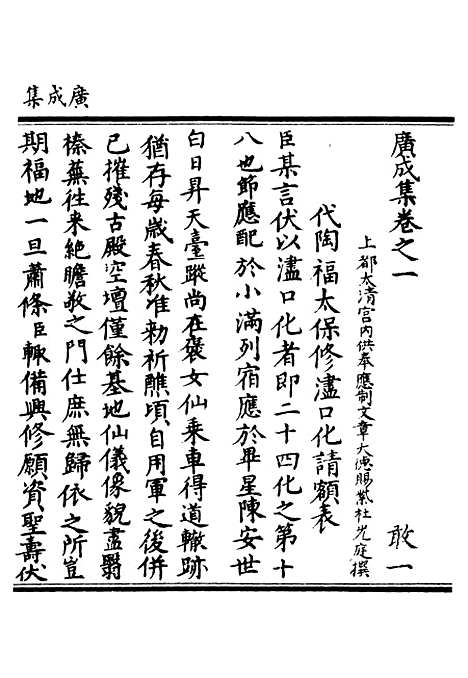 廣成集
廣成集卷之一 敢一
上都太清宮內供奉應制文章大德賜紫杜光庭撰
代陶福太保修濜口化請額表
臣某言伏以濜口化者即二十四化之第十
八也節應配於小滿列宿應於畢星陳安世
白日昇天臺蹤尚在褒女仙乘車得道轍跡
猶存每歲春秋准勑祈醮頃自用軍之後併
已摧殘古殿空壇僅餘基地仙儀像貌盡翳
榛蕪往来絕瞻敬之門仕庶無歸依之所豈
期福地一旦蕭條臣輒備興修願資聖壽伏